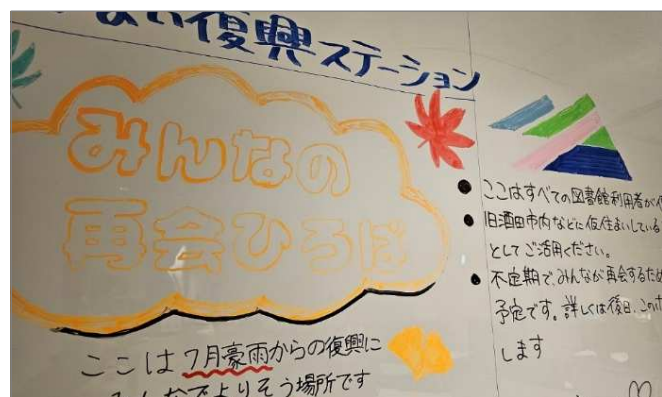 復興ステーション
みんなの
再会ひろば
ここは7月豪雨からの復興に
みんなでよりそう場所です
ここはすべての図書館利用者が
旧酒田市内などに仮住まいしている
としてご活用ください。
不定期で、みんなが再会するため
予定です。詳しくは後日、この
します